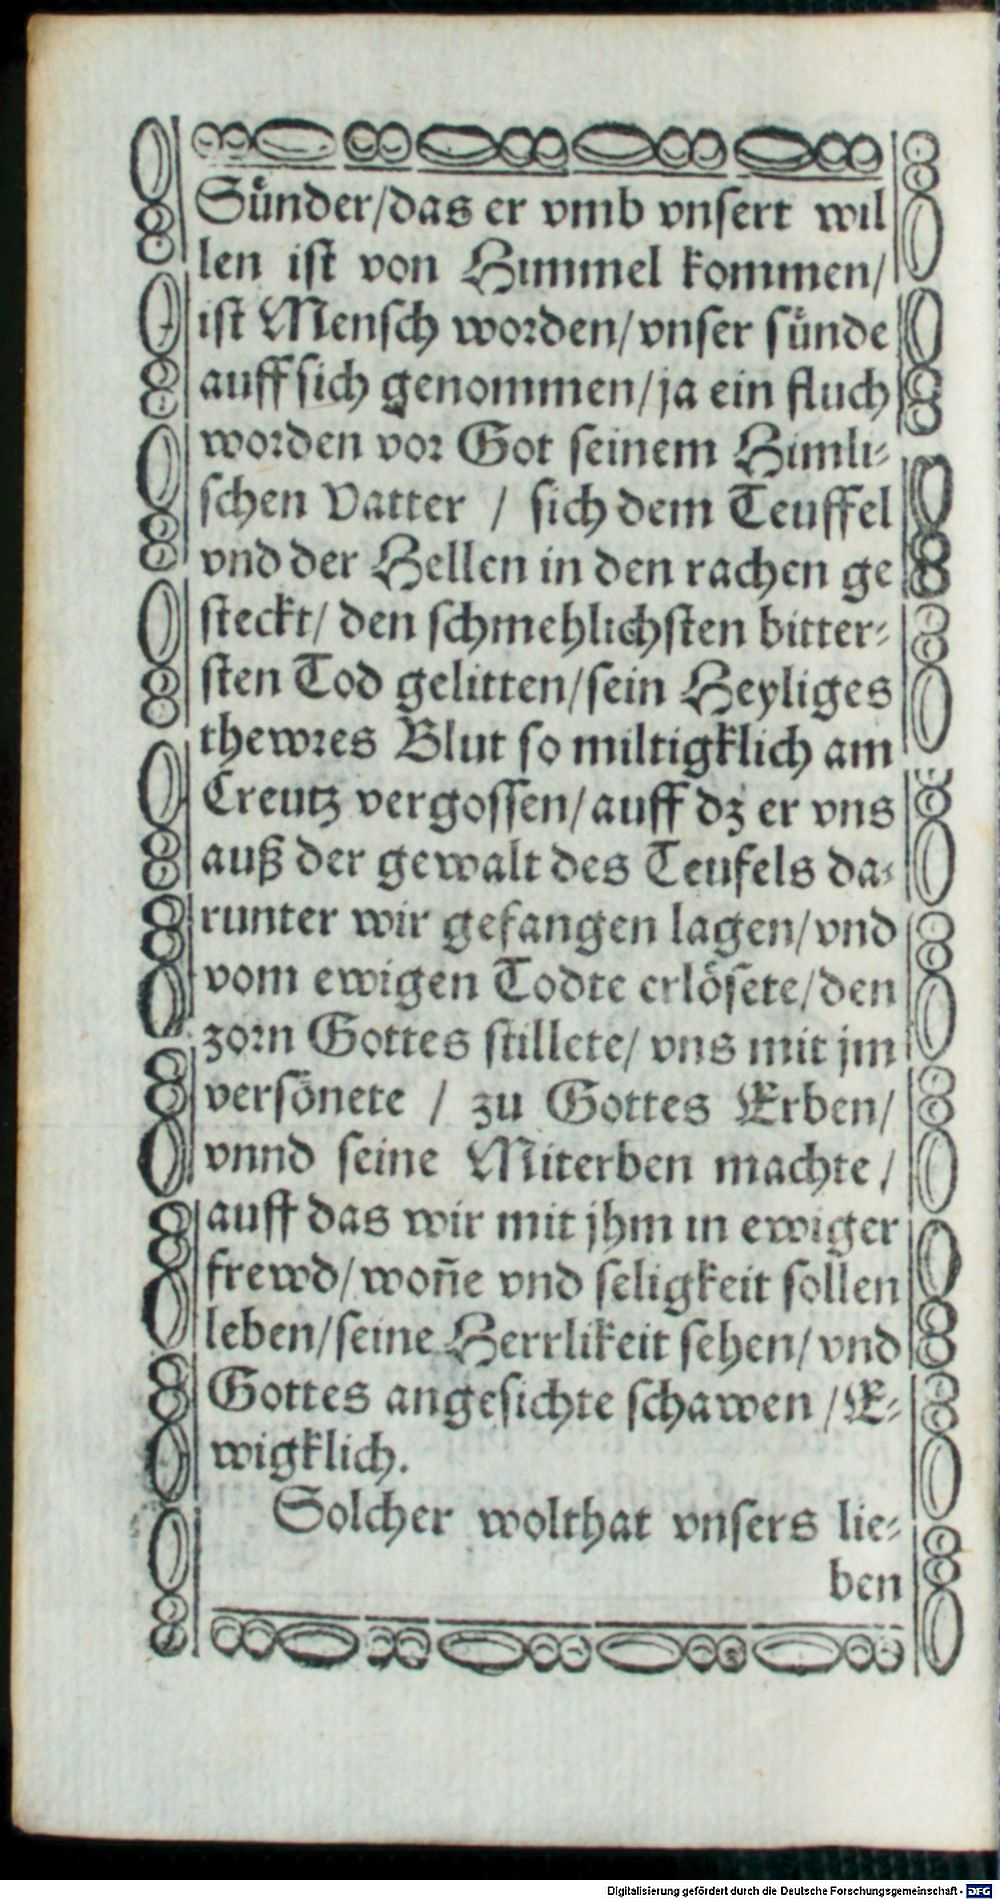 Sünder/das er vmb vnsert wil
len ist von Himmel kommen/
ist Mensch worden/vnser sünde
auff sich genommen/ja ein fluch
worden vor Got seinem Himli-
schen Vatter / sich dem Teuffel
vnd der Hellen in den rachen ge
steckt/ den schmehlichsten bitter-
sten Tod gelitten/sein Heyliges
thewres Blut so miltigklich am
Creutz vergossen/auff dz er vns
auß der gewalt des Teufels da-
runter wir gefangen lagen/vnd
vom ewigen Todte erlösete/den
zorn Gottes stillete/ vns mit jm
versönete / zu Gottes Erben/
vnnd seine Miterben machte/
auff das wir mit jhm in ewiger
frewd/woñe vnd seligkeit sollen
leben/seine Herrlikeit sehen/vnd
Gottes angesichte schawen /E-
wigklich.
Solcher wolthat vnsers lie-
ben
Digitalisierung gefördert durch die Deutsche Forschungsgemeinschaft - DFG